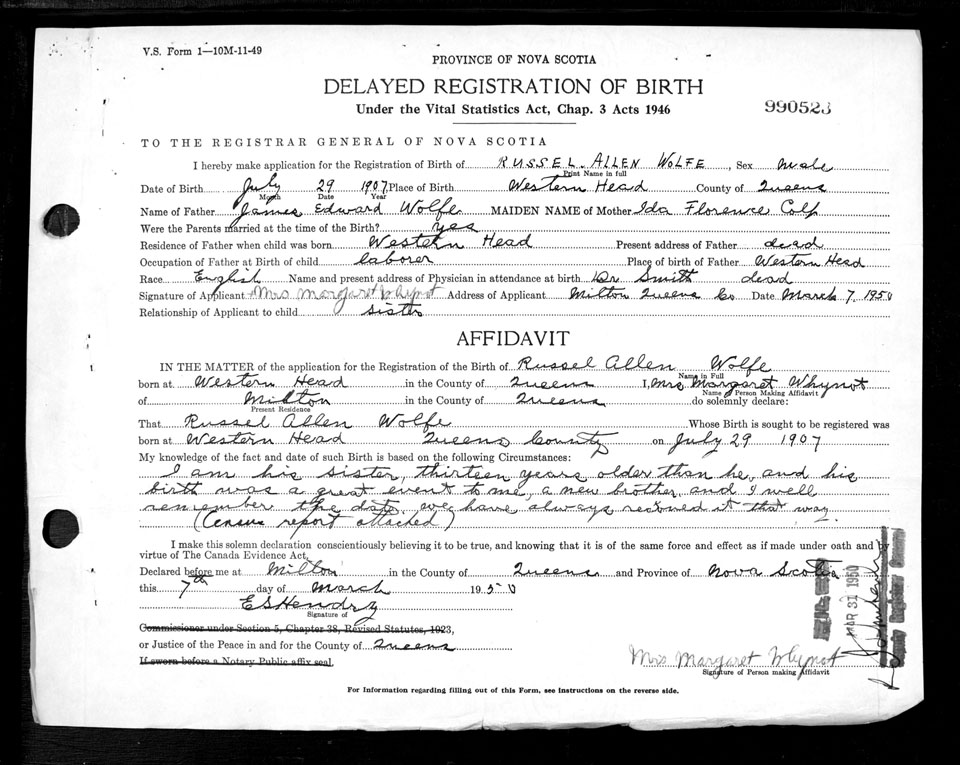 V.S. Form 1—10M-11-49
PROVINCE OF NOVA SCOTIA
DELAYED REGISTRATION OF BIRTH
Under the Vital Statistics Act, Chap. 3 Acts 1946
990523
TO THE REGISTRAR GENERAL OF NOVA SCOTIA
I hereby make application for the Registration of Birth of RUSSEL ALLEN WOLFE, Sex male
Print Name in full
Date of Birth July 29 1907 Place of Birth Western Head County of Queens
Month Date Year
Name of Father James Edward Wolfe MAIDEN NAME of Mother Ida Florence Colp
Were the Parents married at the time of the Birth? yes
Residence of Father when child was born Western Head Present address of Father dead
Occupation of Father at Birth of child laborer Place of birth of Father Western Head
Race English Name and present address of Physician in attendance at birth Dr Smith dead
Signature of Applicant Mrs Margaret Whynot Address of Applicant Milton Queens Co Date March 7, 1950
Relationship of Applicant to child sister
AFFIDAVIT
IN THE MATTER of the application for the Registration of the Birth of Russel Allen Wolfe
Name in Full
born at Western Head in the County of Queens I, Mrs Margaret Whynot
Name of Person Making Affidavit
of Milton in the County of Queens do solemnly declare:
Present Residence
That Russel Allen Wolfe Whose Birth is sought to be registered was
born at Western Head Queens County on July 29 1907
My knowledge of the fact and date of such Birth is based on the following Circumstances:
I am his sister, thirteen years older than he, and his
birth was a great event to me, a new brother, and I well
remember the date, we have always reckoned it that way.
(Census report attached)
I make this solemn declaration conscientiously believing it to be true, and knowing that it is of the same force and effect as if made under oath and by
virtue of The Canada Evidence Act,
Declared before me at Milton in the County of Queens and Province of Nova Scotia
this 7th day of March 1950
E S Hendry
Signature of
Commissioner under Section 5, Chapter 38, Revised Statutes, 1923,
or Justice of the Peace in and for the County of Queens
If sworn before a Notary Public affix seal.
MAR 31 1950
Mrs Margaret Whynot
Signature of Person making Affidavit
For Information regarding filling out of this Form, see instructions on the reverse side.